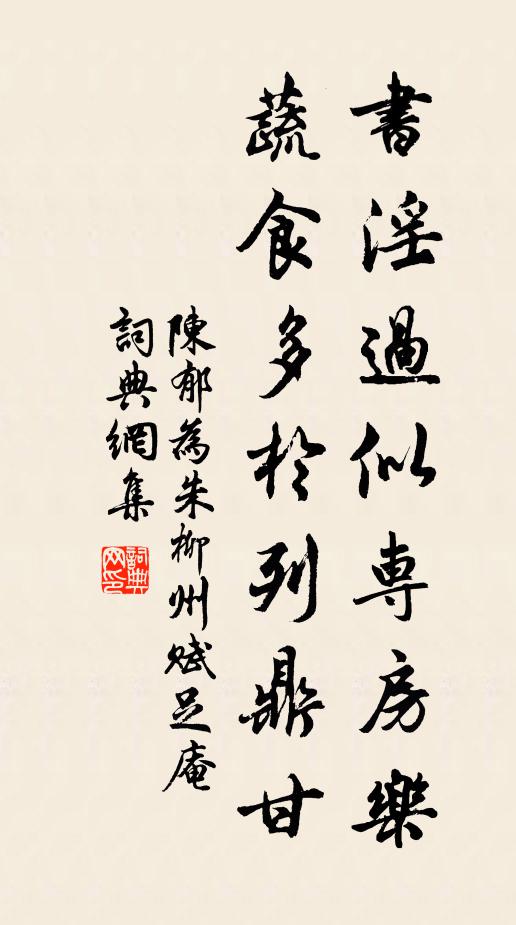 書淫過似専房樂
蔬食多於列鼎甘
陳郁為朱柳州賦足庵
詞典網集
詞典网印